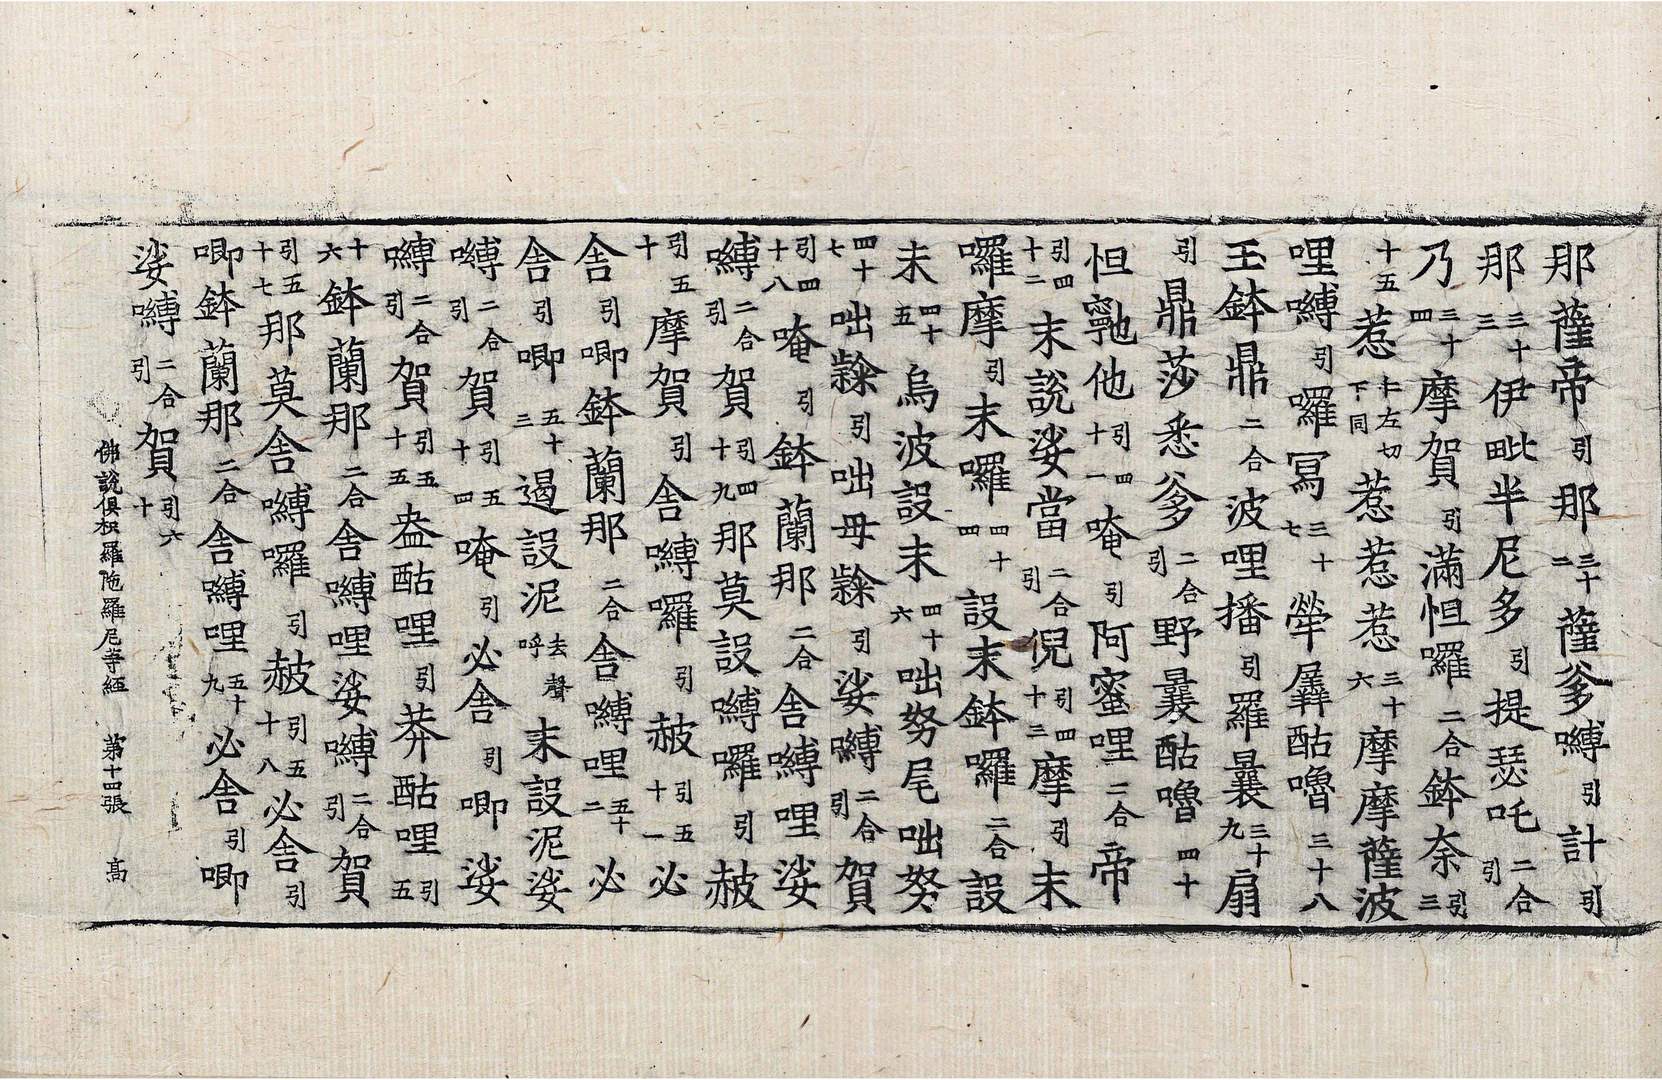 那薩帝引那三十二薩爹嚩引計引
那三十三伊毗半尼多引提瑟吒二合引
乃三十四摩賀引滿怛囉二合鉢奈引三
十五惹仁左切下同惹惹惹三十六摩摩薩波
哩嚩引囉寫三十七犖羼酤嚕三十八
王鉢鼎二合波哩播引羅曩三十九扇
引鼎莎悉爹二合引野曩酤嚕四十
怛寧也他引四十一唵引阿蜜哩二合帝
引四十二末說娑當二合引倪引四十三摩引末
囉摩引末囉四十四設末鉢囉二合設
末四十五烏波設末四十六咄努尾咄努
四十七咄𪐀引咄毋𪐀引娑嚩二合引賀
引四十八唵引鉢蘭那二合舎嚩哩娑
嚩二合引賀引四十九那莫設嚩囉引赦
引五十摩賀引舎嚩囉引赦引五十一必
舎引唧鉢蘭那二合舎嚩哩五十二必
舎引唧五十三遏設泥去聲呼末設泥娑
嚩二合引賀引五十四唵引必舎引唧娑
嚩二合引賀引五十五盎酤哩引莽酤哩引五
十六鉢蘭那二合舎嚩哩娑嚩二合引賀
引五十七那莫舎嚩囉引赦引五十八必舎引
唧鉢蘭那二合舎嚩哩五十九必舎引唧
娑嚩二合引賀引六十
佛說俱枳羅陁羅尼等經 第十四張 髙